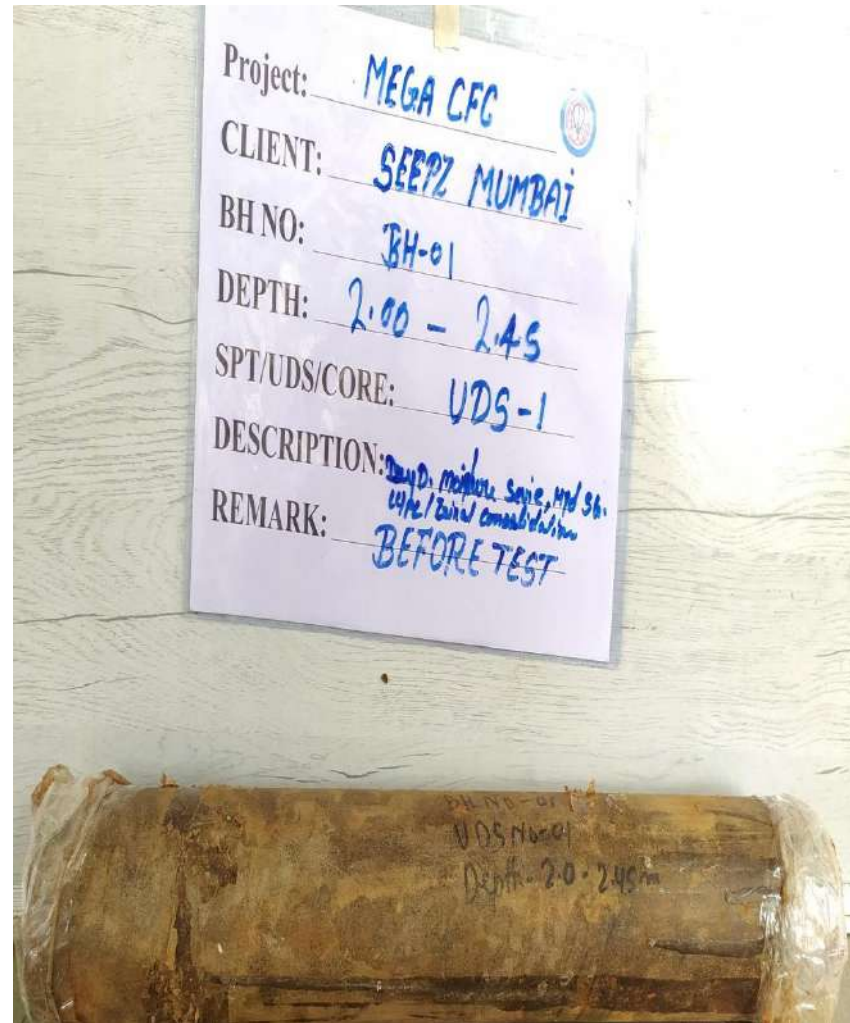 Project: MEGA CFC
CLIENT: SEEPZ MUMBAI
BH NO: BH-01
DEPTH: 2.00 - 2.45
SPT/UDS/CORE: UDS-1
DESCRIPTION: moisture
REMARK: BEFORE TEST
BH NO-01
UDS No-01
Depth-2.0-2.45m